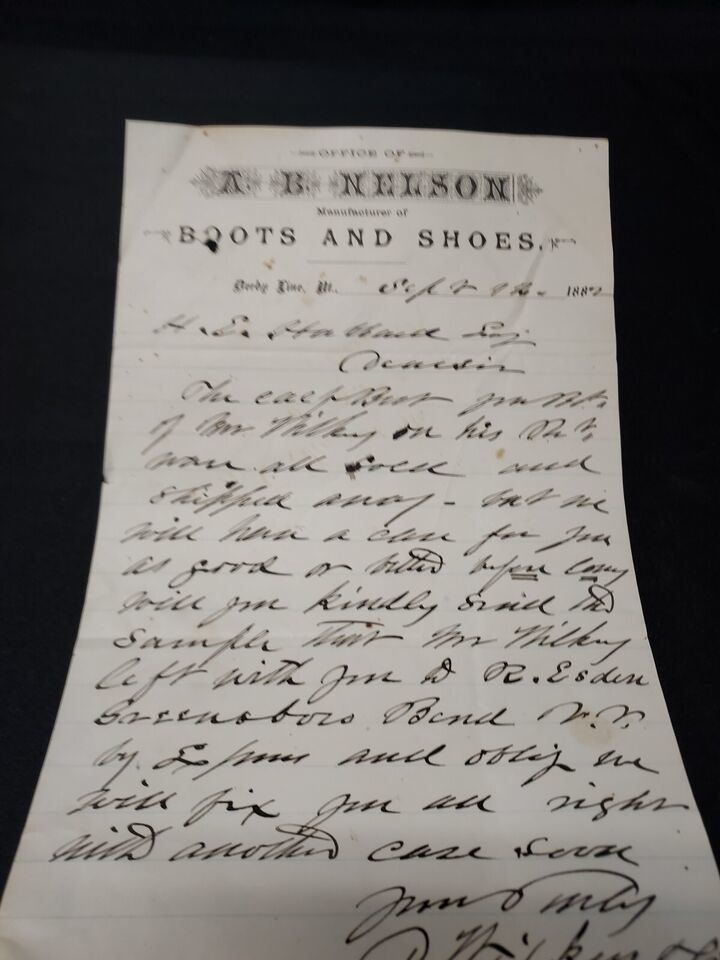 OFFICE OF
A. B. NELSON
Manufacturer of
BOOTS AND SHOES.
Derby Line, Vt., Sept 12. 1882
H. E. Esq
Dear Sir
The calf Boot
of Mr Wilkey on his
were all sold and
shipped away - but we
will have a case for you
as good or better before long
will you kindly send the
sample that Mr Wilkey
left with you to R. Esden
Greensboro Bend
by Express and oblige we
will fix you all right
with another case soon
Yours Truly